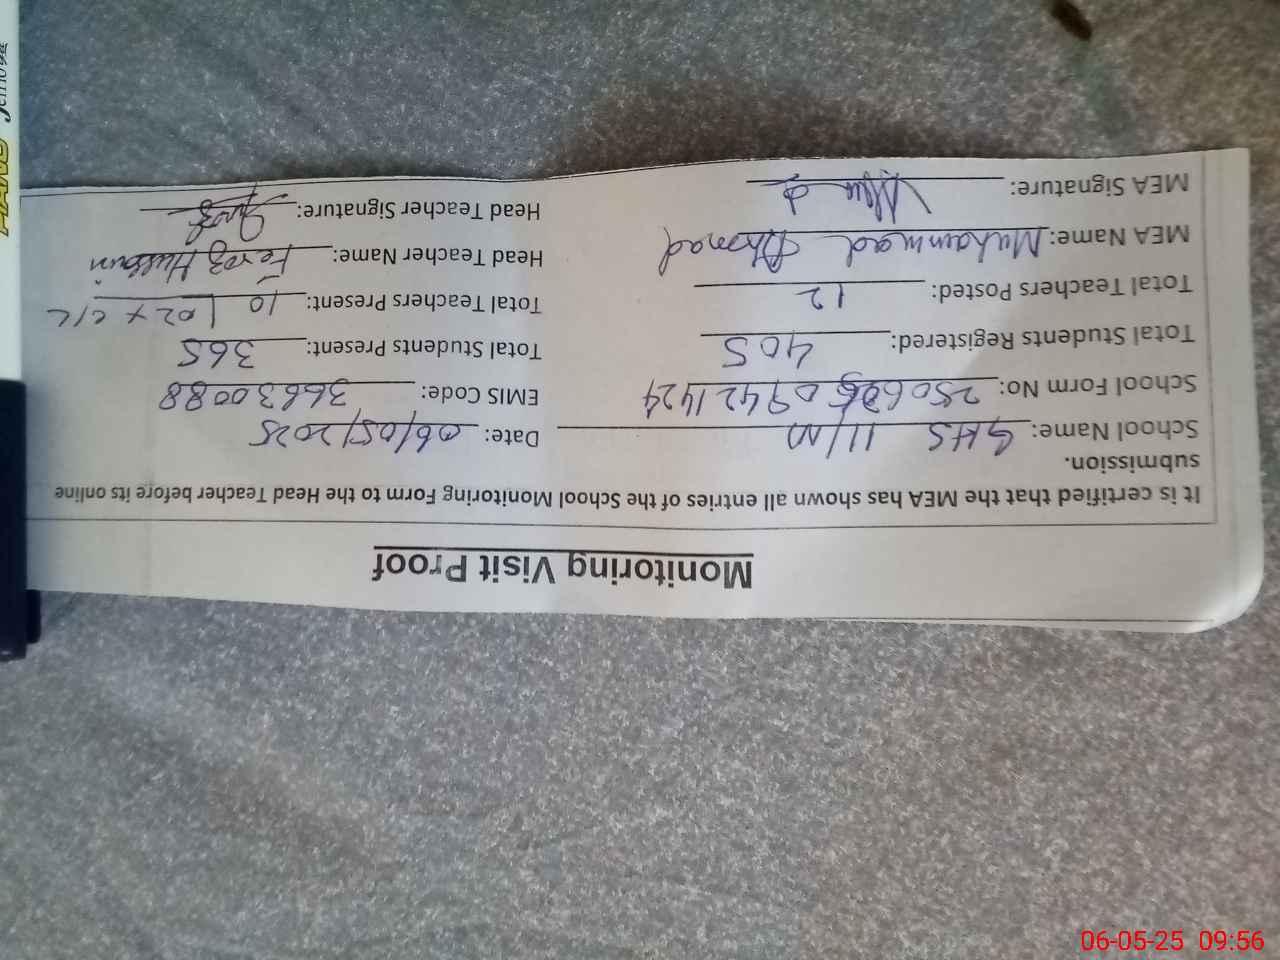 Monitoring Visit Proof
It is certified that the MEA has shown all entries of the School Monitoring Form to the Head Teacher before its online
submission.
School Name: GHS 11/M Date: 06/05/2025
School Form No: EMIS Code: 36630088
Total Students Registered: 405 Total Students Present: 365
Total Teachers Posted: 12 Total Teachers Present: 10 | 02 x C/L
MEA Name: Muhammad Ahmad Head Teacher Name: Feroz Hussain
MEA Signature: Head Teacher Signature:
06-05-25 09:56